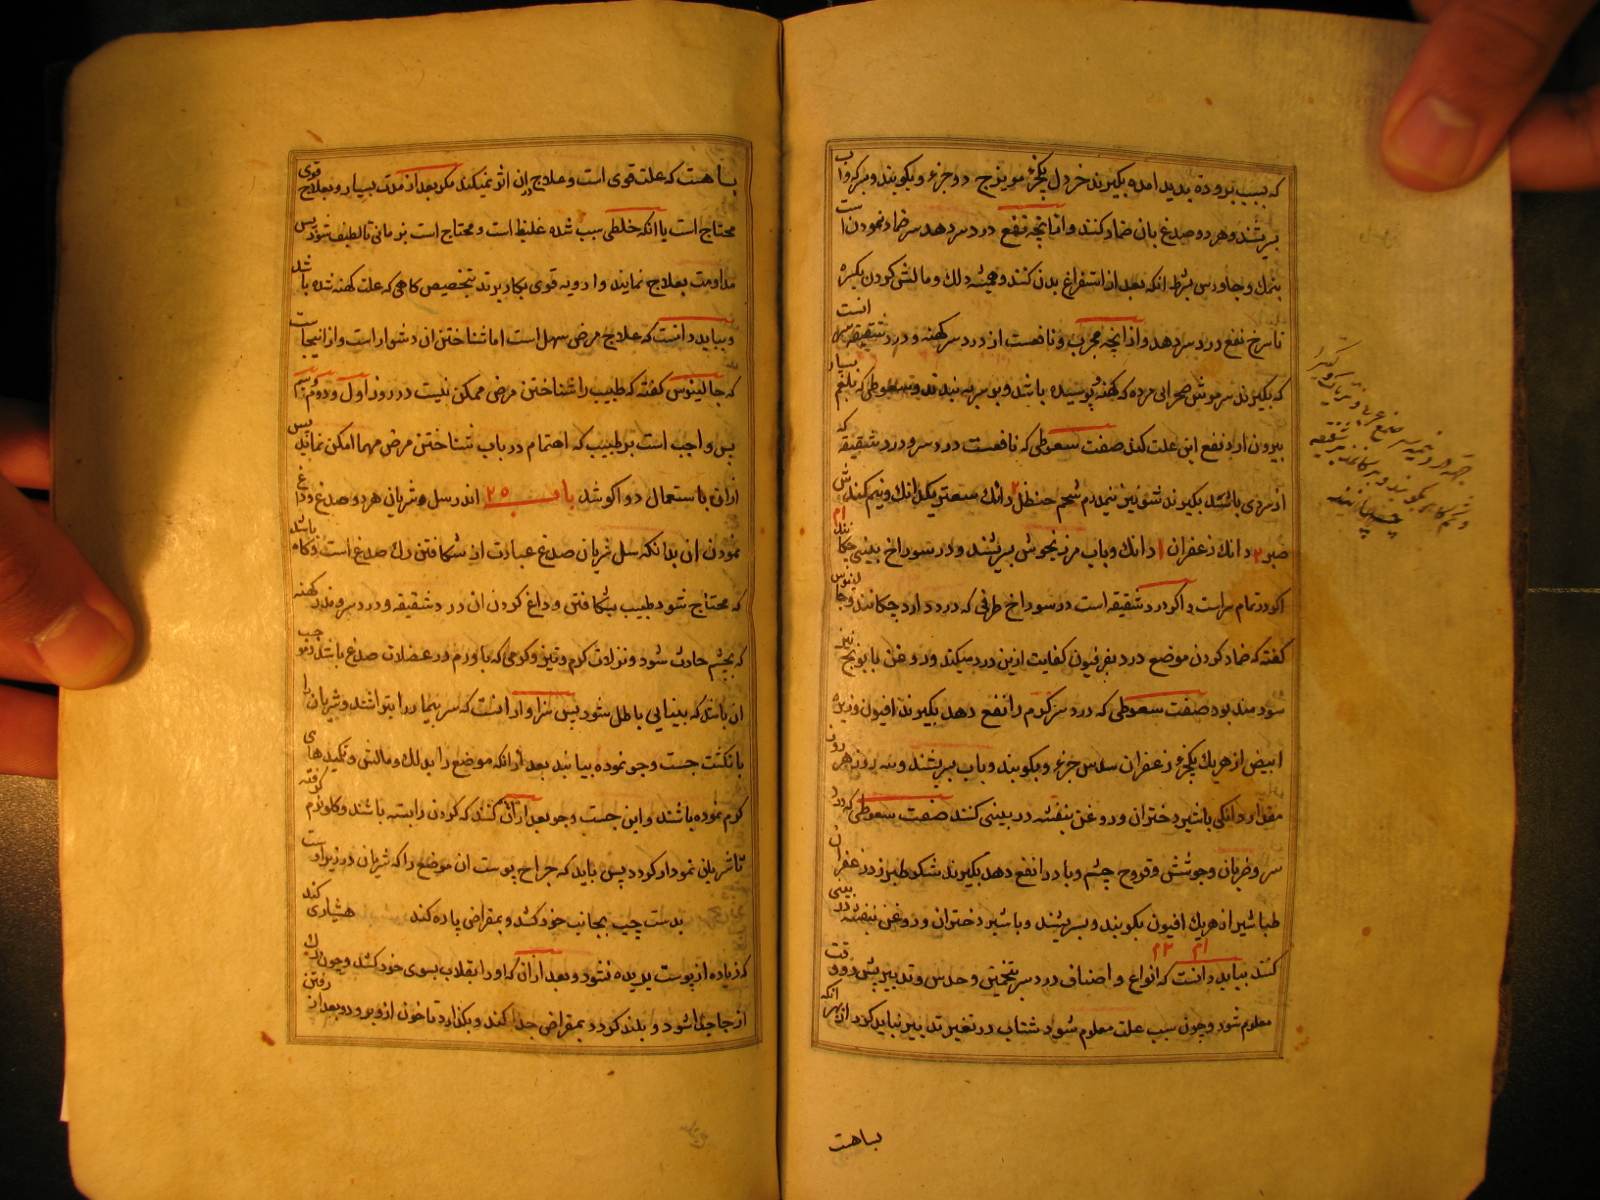 که بسبب برودة بدید امده بکیرند خردل یکجزء مویزج دو جزء و بکوبند و بسرکه و اب
بسرشند و هر دو صدغ بان ضماد کنند و انانچه نفع درد سر دهد سر ضماد نمودن است
بنمك و جاورس بشرط انکه بعد از استفراغ بدن کنند و همیشه دلك و مالش کردن بکسره
تا سرخ نفع درد سر دهد و از انچه مجرب و نافعست از درد سر کهنه و درد شقیقه انست
که بکیرند سر موش صحرایی مرده که کهنه پوسیده باشد و بر سر به بندند و سعوطی که بلغم بسیار
بیرون ارد نفع این علت کند صفت سعوطی که نافعست درد سر و درد شقیقه که
از سردی باشد بکیرند شونیز نیمدرم شحم حنظل ۲ دانك سعتر یکدانك و نیم کندش
صبر ۲ دانك زعفران ۱ دانك و باب مرزنجوش بسرشند و در سوراخ بینی چکانند
اکر در تمام سر است و اکر درد شقیقه است در سوراخ طرفی که درد دارد چکانند و جالینوس
کفته که ضماد کردن موضع درد بفرفیون کفایت ازین درد میکند و روغن بابونج نیز
سودمند بود صفت سعوطی که درد سر کرم را نفع دهد بکیرند افیون و بزره
ابیض از هر یك یکجزء زعفران سدس جزء و بکوبند و باب بسرشند و سه روز هر روز
مقدار دانکی با شیر دختران و روغن بنفشه در بینی کنند صفت سعوطی که درد
سر و ضربان و جوشش و قروح چشم و باد را نفع دهد بکیرند شکر طبرزد زعفران
طباشیر از هر یك افیون بکوبند و بسرشند و با شیر دختران و روغن بنفشه در بینی
کنند بباید دانست که انواع و اصناف درد سر بتخمین و حدس و تدبیر پیش رو وقت
معلوم شود و چون سبب علت معلوم شود شتاب در تغییر تدبیر نباید کرد از بهر انکه
بساهست
بساهست که علت قوی است و علاج دران اثر نمیکند مکر بعد از مدت بسیار و بعلاج قوی
محتاج است یا انکه خلطی سبب شده غلیظ است و محتاج است بزمانی تا لطیف شود پس
مداومت بعلاج نمایند و ادویه قوی بکار برند بتخصیص کاهی که علت کهنه شده باشد
و بباید دانست که علاج مرض سهل است اما شناختن ان دشوار است و از اینجاست
که جالینوس کفته که طبیب را شناختن مرض ممکن نیست در روز اول و دوم و سیم
پس واجب است بر طبیب که اهتمام در باب شناختن مرض مهما امکن نماید پس
ازان باستعمال دوا کوشد باب ۲۵ اندر سل شریان هر دو صدغ و داغ
نمودن ان بدانکه سل شریان صدغ عبارت از شکافتن رك صدغ است و کاه باشد
که محتاج شود طبیب بشکافتن و داغ کردن ان در درد شقیقه و درد سر و نزله کهنه
که بچشم حادث شود و نزلات کرم و تیز و کرمی که با ورم در عضلات صدغ باشد و موجب
ان باشد که بینایی باطل شود پس سزاوار انست که سر بیمار را بتراشند و شریان را
بانکشت جست و جو نموده بیابند بعد از انکه موضع را بدلك و مالش و تکمیدهای
کرم نموده باشند و این جست و جو بعد ازان کنند که کردن را بسته باشند و کلو کرفته
تا شریان نمودار کردد پس باید که جراح پوست ان موضع را که شریان در زیر اوست
بدست چپ بجانب خود کشد و بمقراضی پاره کند هشیاری کند
که زیاده از پوست بریده نشود و بعد ازان که او را بقلاب بسوی خود کشد و چون رك
از جا جدا شود و بلند کردد بمقراضی جدا کند و بکذارد تا خون ازو برود و بعد از رفتن